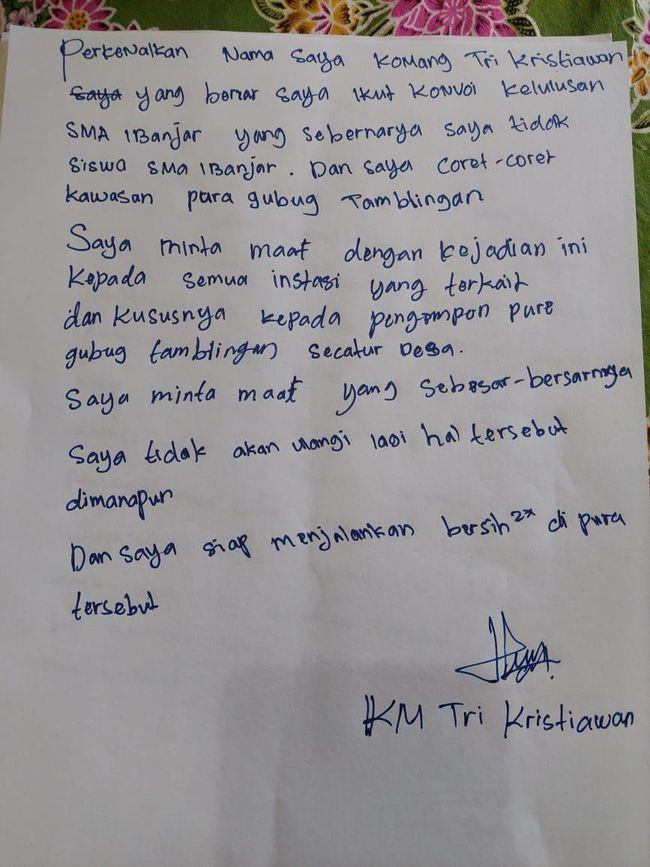 Perkenalkan Nama Saya Komang Tri Kristiawan
saya yang benar saya ikut konvoi kelulusan
SMA 1 Banjar yang sebernarya saya tidak
siswa SMA 1 Banjar. Dan saya coret-coret
kawasan pura gubug Tamblingan
Saya minta maaf dengan kejadian ini
kepada semua instasi yang terkait
dan kususnya kepada pengempon pure
gubug tamblingan secatur Desa.
Saya minta maaf yang sebesar-bersarnnya
Saya tidak akan ulangi lagi hal tersebut
dimanapun
Dan saya siap menjalankan bersih2x di pura
tersebut
KM Tri Kristiawan